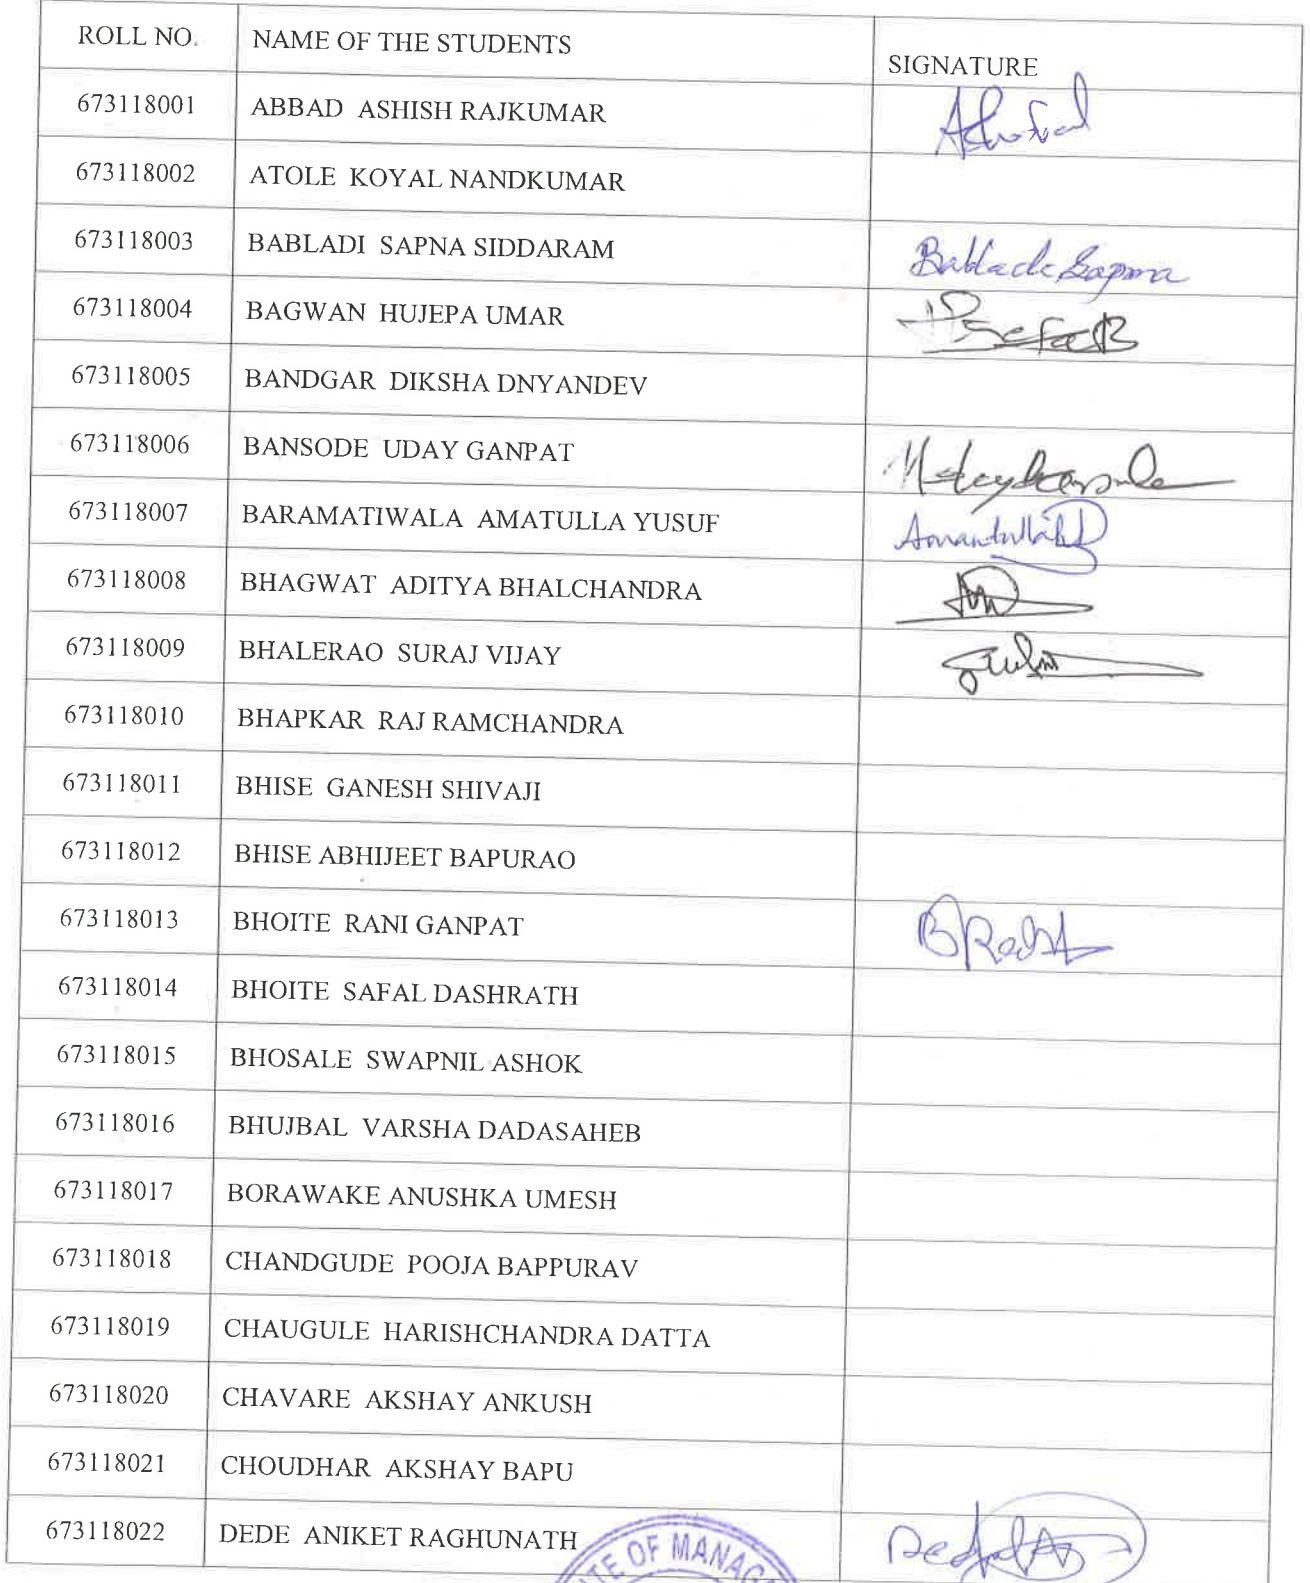 ROLL NO. NAME OF THE STUDENTS SIGNATURE
673118001 ABBAD ASHISH RAJKUMAR
673118002 ATOLE KOYAL NANDKUMAR
673118003 BABLADI SAPNA SIDDARAM Babladi Sapna
673118004 BAGWAN HUJEPA UMAR
673118005 BANDGAR DIKSHA DNYANDEV
673118006 BANSODE UDAY GANPAT
673118007 BARAMATIWALA AMATULLA YUSUF
673118008 BHAGWAT ADITYA BHALCHANDRA
673118009 BHALERAO SURAJ VIJAY
673118010 BHAPKAR RAJ RAMCHANDRA
673118011 BHISE GANESH SHIVAJI
673118012 BHISE ABHIJEET BAPURAO
673118013 BHOITE RANI GANPAT
673118014 BHOITE SAFAL DASHRATH
673118015 BHOSALE SWAPNIL ASHOK
673118016 BHUJBAL VARSHA DADASAHEB
673118017 BORAWAKE ANUSHKA UMESH
673118018 CHANDGUDE POOJA BAPPURAV
673118019 CHAUGULE HARISHCHANDRA DATTA
673118020 CHAVARE AKSHAY ANKUSH
673118021 CHOUDHAR AKSHAY BAPU
673118022 DEDE ANIKET RAGHUNATH
TE OF MANAG